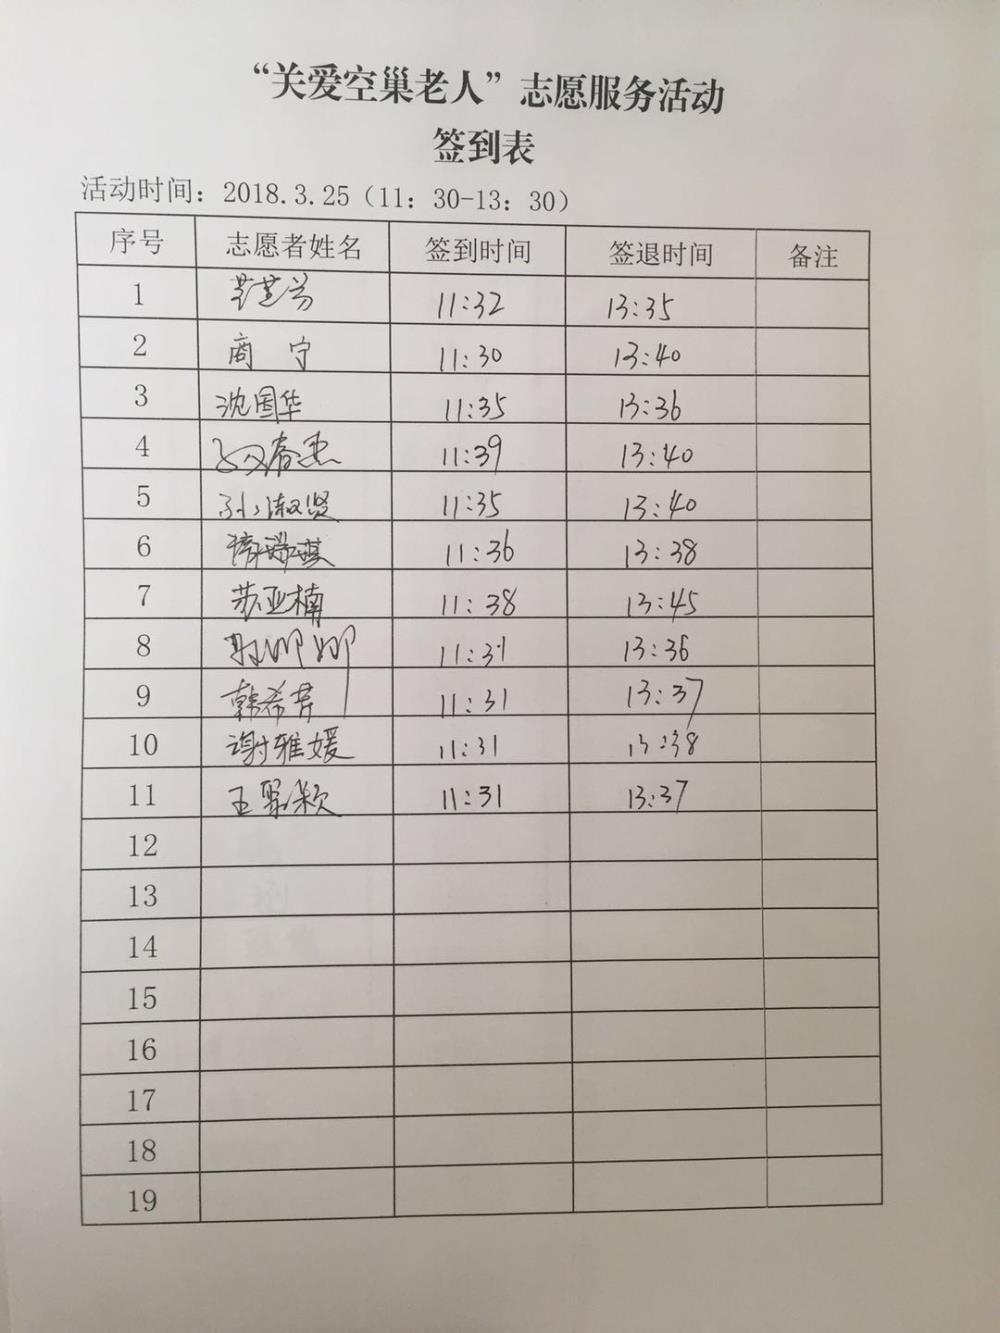 “关爱空巢老人”志愿服务活动
签到表
活动时间：2018.3.25（11：30-13：30）
序号 志愿者姓名 签到时间 签退时间 备注
1 11:32 13:35
2 商宁 11:30 13:40
3 沈国华 11:35 13:36
4 11:39 13:40
5 孙淑贤 11:35 13:40
6 11:36 13:38
7 苏亚楠 11:38 13:45
8 11:31 13:36
9 韩希芹 11:31 13:37
10 谢雅媛 11:31 13:38
11 王翠颖 11:31 13:37
12
13
14
15
16
17
18
19